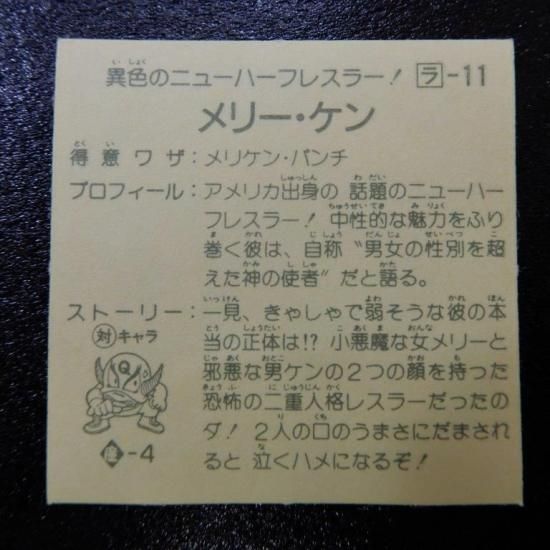 異色のニューハーフレスラー! ラ-11
メリー・ケン
得意ワザ:メリケン・パンチ
プロフィール:アメリカ出身の 話題のニューハー
フレスラー! 中性的な魅力をふり
巻く彼は、自称〝男女の性別を超
えた神の使者〞だと語る。
ストーリー:一見、きゃしゃで弱そうな彼の本
当の正体は!? 小悪魔な女メリーと
邪悪な男ケンの2つの顔を持った
恐怖の二重人格レスラーだったの
ダ! 2人の口のうまさにだまされ
ると 泣くハメになるぞ!
対キャラ
Q
-4